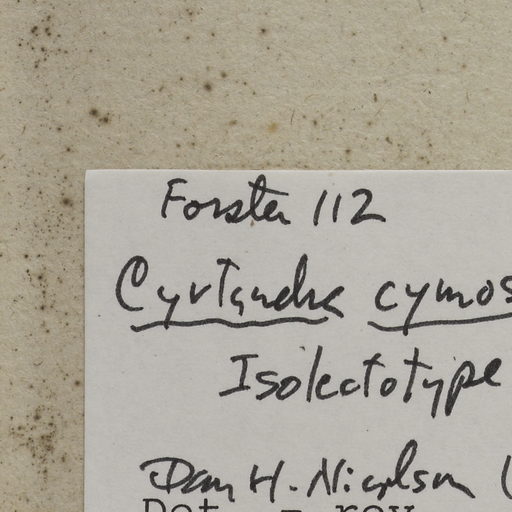 Forster 112
Cyrtandra cymos
Isolectotype
Dan H. Nicolson (
Det. - rev.